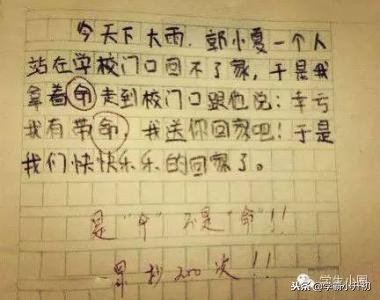 今天下大雨，郭小夏一个人
站在学校门口回不了家，于是我
拿着命走到校门口跟他说：幸亏
我有带命，我送你回家吧！于是
我们快快乐乐的回家了。
是“伞”不是“命”!!
罚抄200次!!
学生小圈
头条@学霸小升初